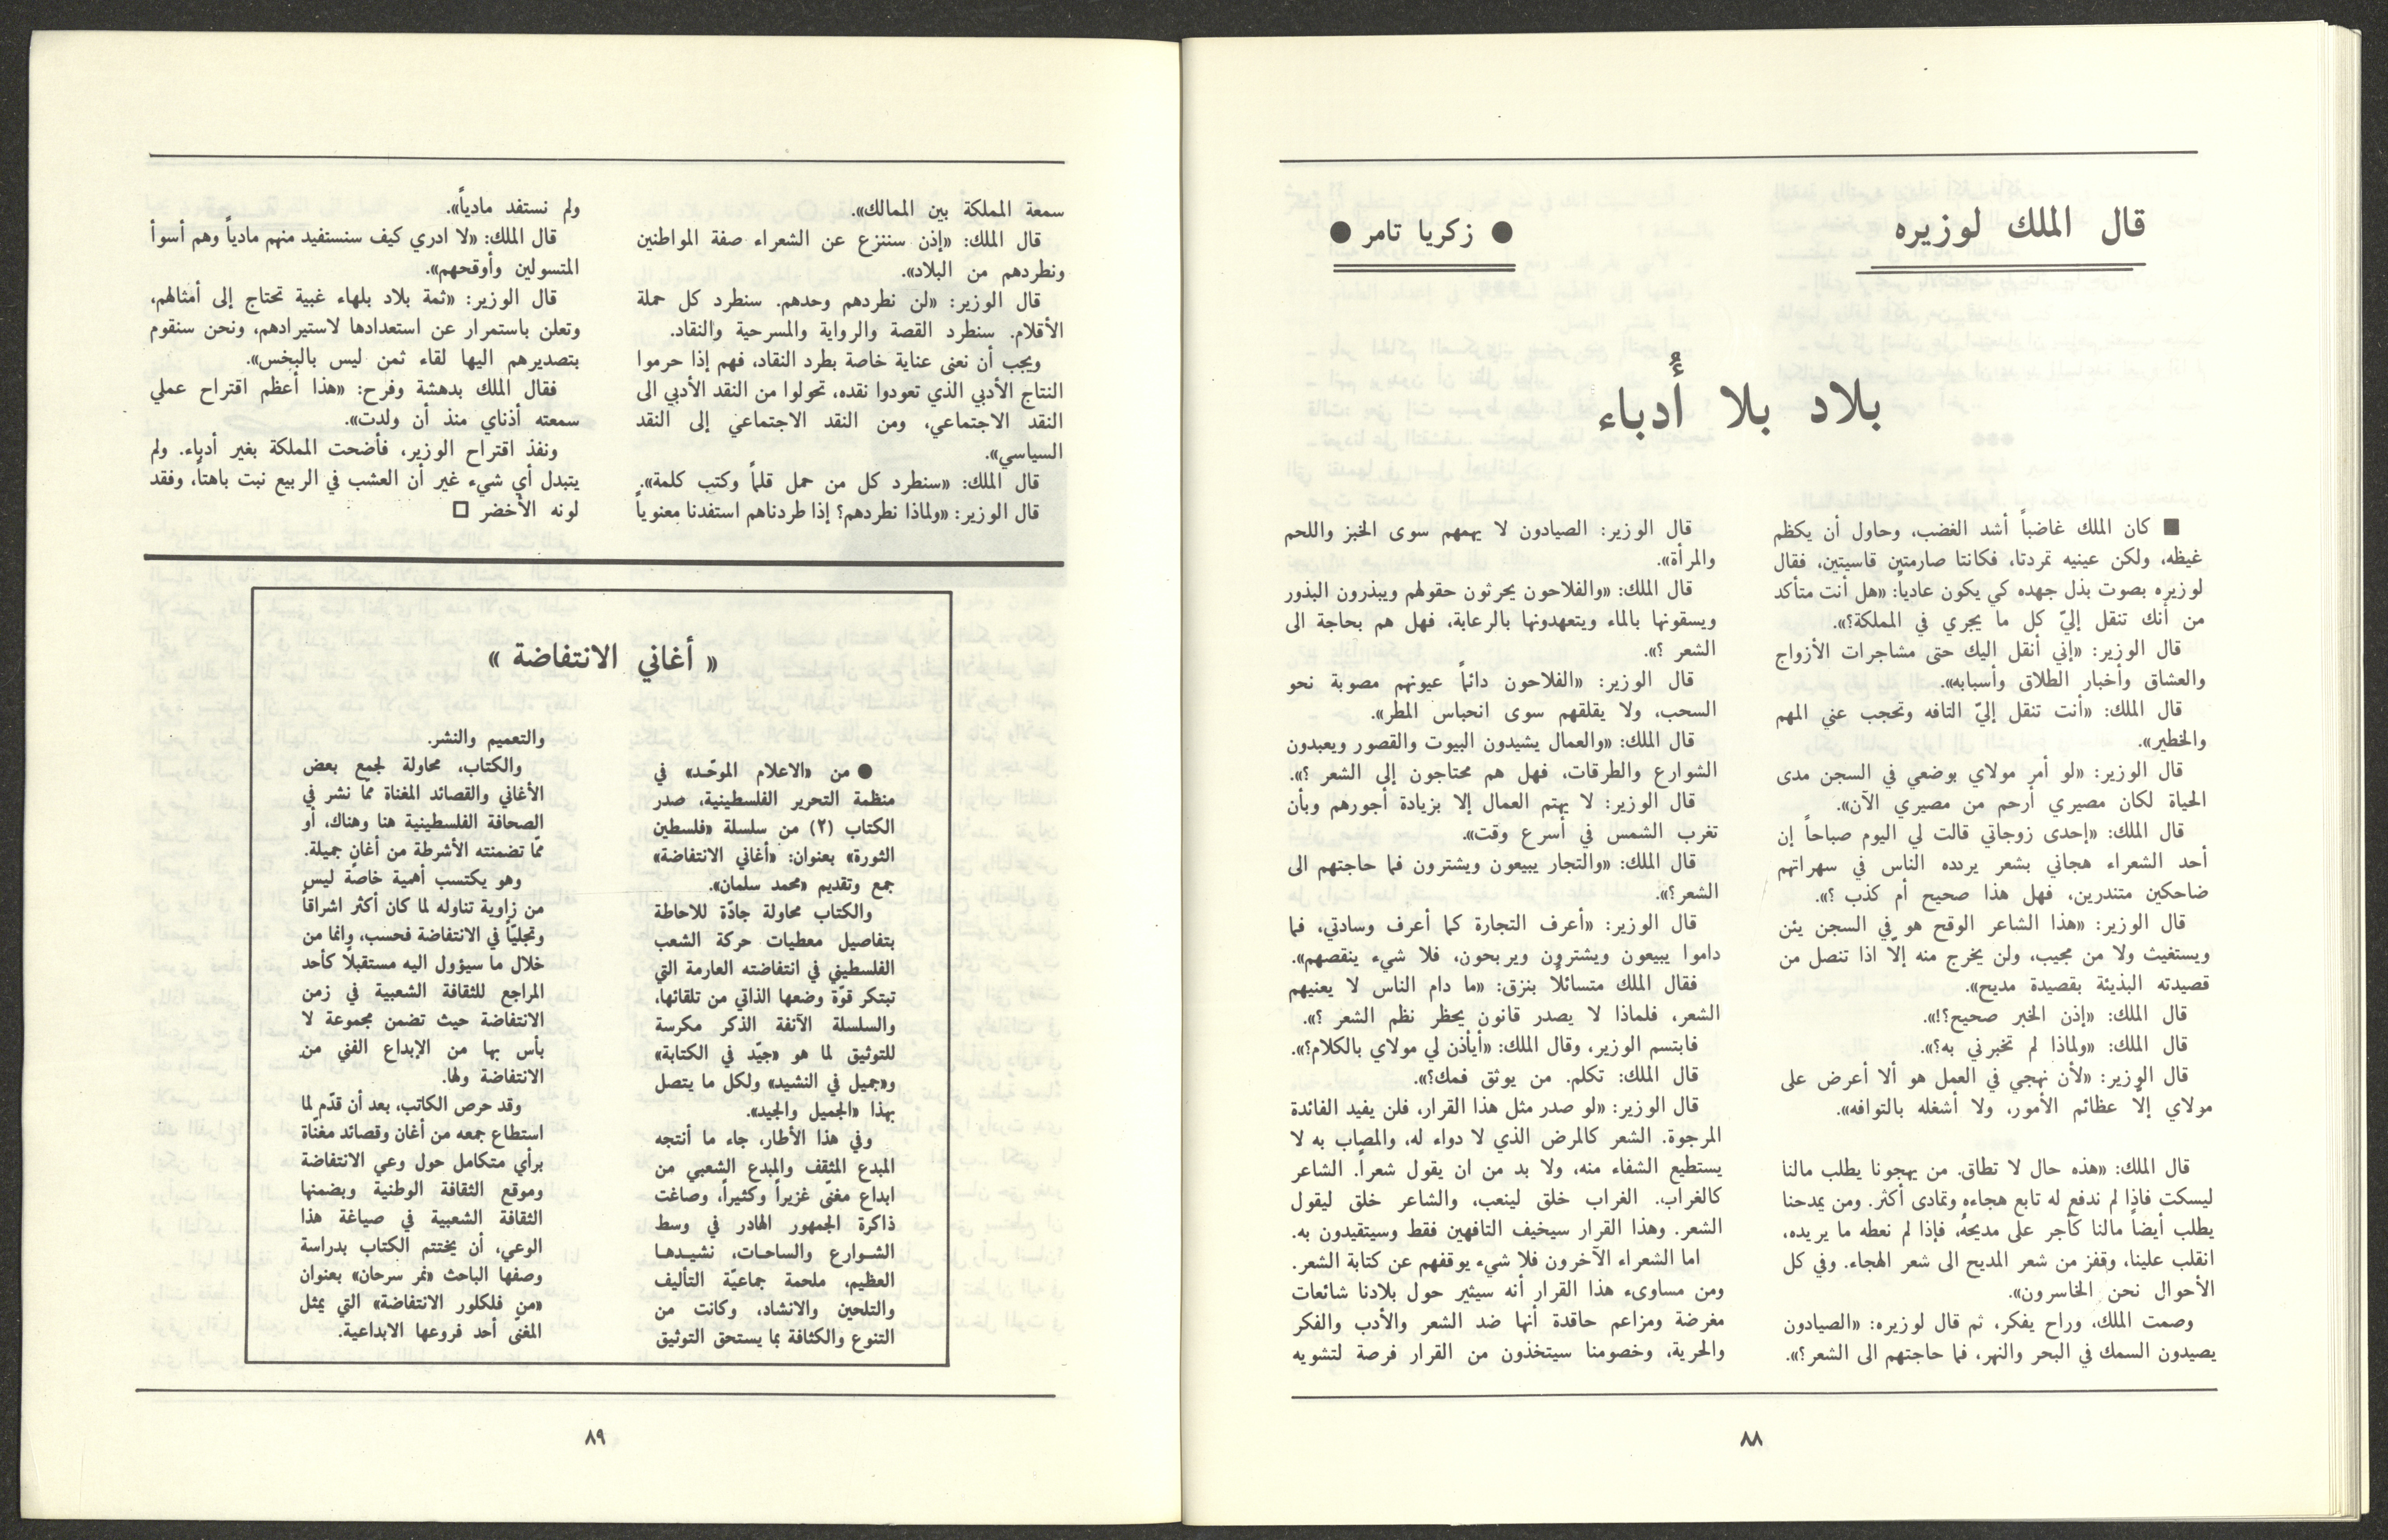 قال الملك لوزيره
● زكريا تامر ●
بلاد بلا أُدباء
■ كان الملك غاضباً أشد الغضب، وحاول أن يكظم
غيظه، ولكن عينيه تمردتا، فكانتا صارمتين قاسيتين، فقال
لوزيره بصوت بذل جهده كي يكون عادياً: «هل أنت متأكد
من أنك تنقل إليّ كل ما يجري في المملكة؟».
قال الوزير: «إني أنقل اليك حتى مشاجرات الأزواج
والعشاق وأخبار الطلاق وأسبابه».
قال الملك: «أنت تنقل إليّ التافه وتحجب عني المهم
والخطير».
قال الوزير: «لو أمر مولاي بوضعي في السجن مدى
الحياة لكان مصيري أرحم من مصيري الآن».
قال الملك: «إحدى زوجاتي قالت لي اليوم صباحاً إن
أحد الشعراء هجاني بشعر يردده الناس في سهراتهم
ضاحكين متندرين، فهل هذا صحيح أم كذب ؟».
قال الوزير: «هذا الشاعر الوقح هو في السجن يئن
ويستغيث ولا من مجيب، ولن يخرج منه إلاّ اذا تنصل من
قصيدته البذيئة بقصيدة مديح».
قال الملك: «إذن الخبر صحيح؟!».
قال الملك: «ولماذا لم تخبرني به؟».
قال الوزير: «لأن نهجي في العمل هو ألا أعرض على
مولاي إلّا عظائم الأمور، ولا أشغله بالتوافه».
قال الملك: «هذه حال لا تطاق. من يهجونا يطلب مالنا
ليسكت فإذا لم ندفع له تابع هجاءه وتمادى أكثر. ومن يمدحنا
يطلب أيضاً مالنا كأجر على مديحه، فإذا لم نعطه ما يريده،
انقلب علينا، وقفز من شعر المديح الى شعر الهجاء. وفي كل
الأحوال نحن الخاسرون».
وصمت الملك، وراح يفكر، ثم قال لوزيره: «الصيادون
يصيدون السمك في البحر والنهر، فما حاجتهم الى الشعر؟».
قال الوزير: الصيادون لا يهمهم سوى الخبز واللحم
والمرأة».
قال الملك: «والفلاحون يحرثون حقولهم ويبذرون البذور
ويسقونها بالماء ويتعهدونها بالرعاية، فهل هم بحاجة الى
الشعر ؟».
قال الوزير: «الفلاحون دائماً عيونهم مصوبة نحو
السحب، ولا يقلقهم سوى انحباس المطر».
قال الملك: «والعمال يشيدون البيوت والقصور ويعبدون
الشوارع والطرقات، فهل هم محتاجون إلى الشعر ؟».
قال الوزير: لا يهتم العمال إلا بزيادة أجورهم وبأن
تغرب الشمس في أسرع وقت».
قال الملك: «والتجار يبيعون ويشترون فما حاجتهم الى
الشعر؟».
قال الوزير: «أعرف التجارة كما أعرف وسادتي، فما
داموا يبيعون ويشترون ويربحون، فلا شيء ينقصهم».
فقال الملك متسائلًا بنزق: «ما دام الناس لا يعنيهم
الشعر، فلماذا لا يصدر قانون يحظر نظم الشعر ؟».
فابتسم الوزير، وقال الملك: «أيأذن لي مولاي بالكلام؟».
قال الملك: تكلم. من يوثق فمك؟».
قال الوزير: «لو صدر مثل هذا القرار، فلن يفيد الفائدة
المرجوة. الشعر كالمرض الذي لا دواء له، والمصاب به لا
يستطيع الشفاء منه، ولا بد من ان يقول شعراً. الشاعر
كالغراب. الغراب خلق لينعب، والشاعر خلق ليقول
الشعر. وهذا القرار سيخيف التافهين فقط وسيتقيدون به.
اما الشعراء الآخرون فلا شيء يوقفهم عن كتابة الشعر.
ومن مساوىء هذا القرار أنه سيثير حول بلادنا شائعات
مغرضة ومزاعم حاقدة أنها ضد الشعر والأدب والفكر
والحرية، وخصومنا سيتخذون من القرار فرصة لتشويه
٨٨
سمعة المملكة بين الممالك».
قال الملك: «إذن سننزع عن الشعراء صفة المواطنين
ونطردهم من البلاد».
قال الوزير: «لن نطردهم وحدهم. سنطرد كل حملة
الأقلام. سنطرد القصة والرواية والمسرحية والنقاد.
ويجب أن نعنى عناية خاصة بطرد النقاد، فهم إذا حرموا
النتاج الأدبي الذي تعودوا نقده، تحولوا من النقد الأدبي الى
النقد الاجتماعي، ومن النقد الاجتماعي إلى النقد
السياسي».
قال الملك: «سنطرد كل من حمل قلماً وكتب كلمة».
قال الوزير: «ولماذا نطردهم؟ إذا طردناهم استفدنا معنوياً
ولم نستفد مادياً».
قال الملك: «لا ادري كيف سنستفيد منهم مادياً وهم أسوأ
المتسولين وأوقحهم».
قال الوزير: «ثمة بلاد بلهاء غبية تحتاج إلى أمثالهم،
وتعلن باستمرار عن استعدادها لاستيرادهم، ونحن سنقوم
بتصديرهم اليها لقاء ثمن ليس بالبخس».
فقال الملك بدهشة وفرح: «هذا أعظم اقتراح عملي
سمعته أذناي منذ أن ولدت».
ونفذ اقتراح الوزير، فأضحت المملكة بغير أدباء. ولم
يتبدل أي شيء غير أن العشب في الربيع نبت باهتاً، وفقد
لونه الأخضر □
« أغاني الانتفاضة »
● من «الاعلام الموحّد» في
منظمة التحرير الفلسطينية، صدر
الكتاب (٢) من سلسلة «فلسطين
الثورة» بعنوان: «أغاني الانتفاضة»
جمع وتقديم «محمد سلمان».
والكتاب محاولة جادّة للاحاطة
بتفاصيل معطيات حركة الشعب
الفلسطيني في انتفاضته العارمة التي
تبتكر قوّة وضعها الذاتي من تلقائها،
والسلسلة الآنفة الذكر مكرسة
للتوثيق لما هو «جيّد في الكتابة»
و«جميل في النشيد» ولكل ما يتصل
بهذا «الجميل والجيد».
وفي هذا الأطار، جاء ما أنتجه
المبدع المثقف والمبدع الشعبي من
ابداع مغنّى غزيراً وكثيراً، وصاغت
ذاكرة الجمهور الهادر في وسط
الشوارع والساحات، نشيدها
العظيم، ملحمة جماعيّة التأليف
والتلحين والانشاد، وكانت من
التنوع والكثافة بما يستحق التوثيق
والتعميم والنشر.
والكتاب، محاولة لجمع بعض
الأغاني والقصائد المغناة ممّا نشر في
الصحافة الفلسطينية هنا وهناك، أو
ممّا تضمنته الأشرطة من أغانٍ جميلة.
وهو يكتسب أهمية خاصة ليس
من زاوية تناوله لما كان أكثر اشراقاً
وتجليّاً في الانتفاضة فحسب، وإنما من
خلال ما سيؤول اليه مستقبلًا كأحد
المراجع للثقافة الشعبية في زمن
الانتفاضة حيث تضمن مجموعة لا
بأس بها من الإبداع الفني من
الانتفاضة ولها.
وقد حرص الكاتب، بعد أن قدّم لما
استطاع جمعه من أغان وقصائد مغنّاة
برأي متكامل حول وعي الانتفاضة
وموقع الثقافة الوطنية وبضمنها
الثقافة الشعبية في صياغة هذا
الوعي، أن يختتم الكتاب بدراسة
وصفها الباحث «نمر سرحان» بعنوان
«من فلكلور الانتفاضة» التي يمثل
المغنّى أحد فروعها الابداعية.
٨٩